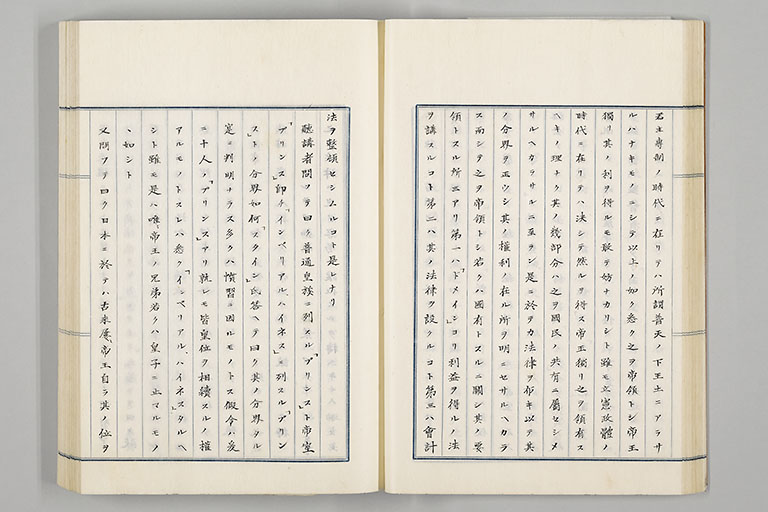 君主専制ノ時代ニ在リテハ所謂普天ノ下王土ニアラサ
ルハナキモノニシテ以上ノ如ク悉ク之ヲ帝領トシ帝王
獨リ其ノ利ヲ得ルモ敢テ妨ナカリシト雖モ立憲政體ノ
時代ニ在リテハ決シテ然ルヲ得ス帝王獨リ之ヲ領有ス
ヘキノ理ナク其ノ幾部分ハ之ヲ國民ノ共有ニ屬セシメ
サルヘカラサルニ至ラン是ニ於テカ法律ヲ以テ其
ノ分界ヲ正ウシ其ノ權利ノ在ル所ヲ明ニセサルヘカラ
ス而シテ之ヲ帝領トシ若クハ國有トスルニ關シ其ノ要
領トスル所三アリ第一ハ「ドメイン」ヨリ利益ヲ得ルノ法
ヲ講スルコト第二ハ其ノ法律ヲ設クルコト第三ハ會計
法ヲ整頓セシムルコト是レナリ
聽講者問フテ曰ク普通皇族ニ列スル「プリンス」ト帝室
「プリンス」即チ「インペリアルハイネス」ニ列スル「プリン
ス」トノ分界如何「スタイン」氏答ヘテ曰ク其ノ分界タル
定ニ判明ナラス多クハ慣習ニ因ルモノトス假令ハ爰
ニ十人ノ「プリンス」アリ孰レモ皆皇位ヲ相續スルノ權
アルモノトスレハ悉ク「インペリアル、ハイネス」タルヘ
シト雖モ是ハ唯、帝王ノ兄弟若クハ皇子ニ止マルモノ
ヽ如シト
又問フテ曰ク日本ニ於テハ古來屢、帝王自ラ其ノ位ヲ